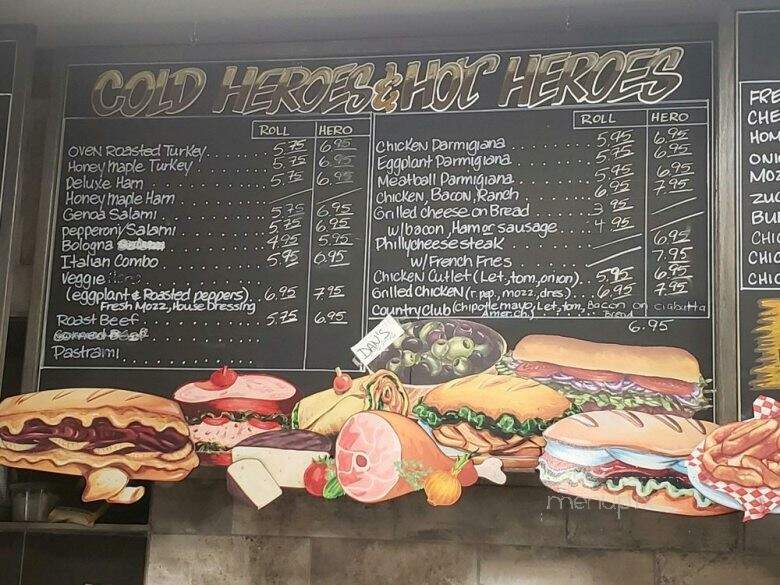 COLD HEROES & HOT HEROES
ROLL HERO
OVEN Roasted Turkey 5.75 6.95
Honey maple Turkey 5.75 6.95
Deluxe Ham 5.75 6.95
Honey maple Ham
Genoa Salami 5.75 6.95
pepperoni/Salami 5.75 6.95
Bologna 4.95 5.95
Italian Combo 5.95 6.95
Veggie
(eggplant & Roasted peppers) 6.95 7.95
Fresh Mozz, House Dressing
Roast Beef 5.75 6.95
Corned Beef
Pastrami
ROLL HERO
Chicken Parmigiana 5.95 6.95
Eggplant Parmigiana 5.75 6.95
Meatball Parmigiana 5.95 6.95
Chicken, Bacon, Ranch 6.95 7.95
Grilled cheese on Bread 3.95
w/bacon, Ham or sausage 4.95
Phillycheesesteak 6.95
w/ French Fries 7.95
Chicken Cutlet (Let, tom, onion) 5.95 6.95
Grilled Chicken (r.pep., mozz, dres.) 6.95 7.95
Country Club (Chipotle mayo, Let, tom, Bacon on ciabatta
Amer. ch.) Bread
6.95
DAN'S
FRE
CHE
HOM
ONI
MOZ
ZU
BU
CHI
CHI
CHI